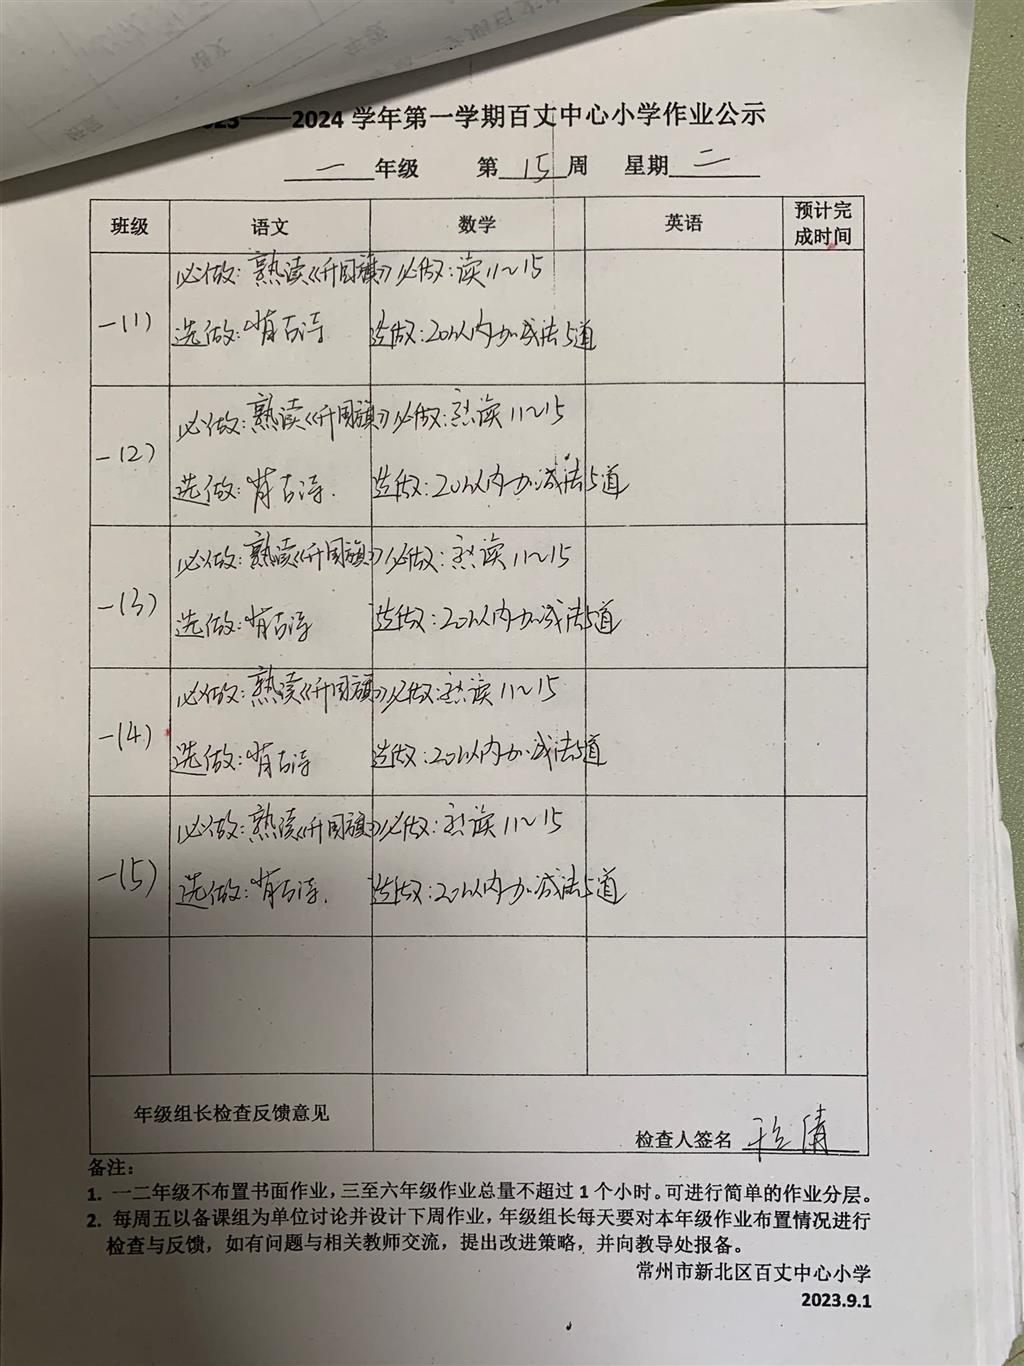 2024 学年第一学期百丈中心小学作业公示
一 年级 第 15 周 星期 二
班级 语文 数学 英语 预计完成时间
必做：熟读《升国旗》 必做：读11~15
一(1)
选做：背古诗 选做：20以内加减法5道
必做：熟读《升国旗》 必做：熟读11~15
一(2)
选做：背古诗. 选做：20以内加减法5道
必做：熟读《升国旗》 必做：熟读11~15
一(3)
选做：背古诗 选做：20以内加减法5道
必做：熟读《升国旗》 必做：熟读11~15
一(4)
选做：背古诗 选做：20以内加减法5道
必做：熟读《升国旗》 必做：熟读11~15
一(5)
选做：背古诗. 选做：20以内加减法5道
年级组长检查反馈意见
检查人签名 倩
备注：
1. 一二年级不布置书面作业，三至六年级作业总量不超过 1 个小时。可进行简单的作业分层。
2. 每周五以备课组为单位讨论并设计下周作业，年级组长每天要对本年级作业布置情况进行
检查与反馈，如有问题与相关教师交流，提出改进策略，并向教导处报备。
常州市新北区百丈中心小学
2023.9.1